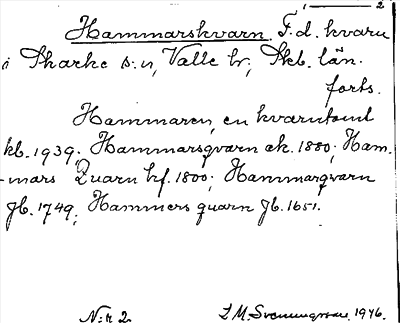 2
Hammarskvarn. F.d. kvarn
i Skarke s:n, Valle hr, Skb. län.
forts.
Hammaren, en kvarntomt
kb. 1939; Hammarsqvarn ek. 1880; Ham-
-mars Quarn hf. 1800; Hammarqvarn
Jb. 1749; Hammers quarn Jb. 1651.
N:r 2 I.M. Svenungsson. 1946.